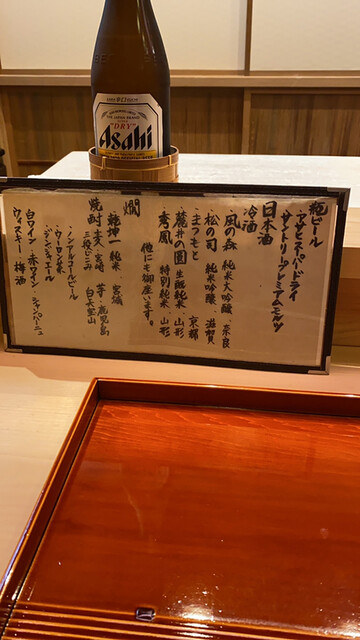 Asahi
"DRY"
瓶ビール
・アサヒスーパードライ
サントリープレミアムモルツ
日本酒
冷酒
・風の森 純米大吟醸・奈良
・松の司 純米吟醸・滋賀
・主つもと ・京都
・麓井の圓 生酛純米・山形
・秀鳳 特別純米・山形
他にも御座います。
燗
・乾坤一 純米・宮城
焼酎
・ノンアルコールビール
・ウーロン茶
・ジンジャエール
白ワイン・赤ワイン・シャンパーニュ
ウィスキー・梅酒